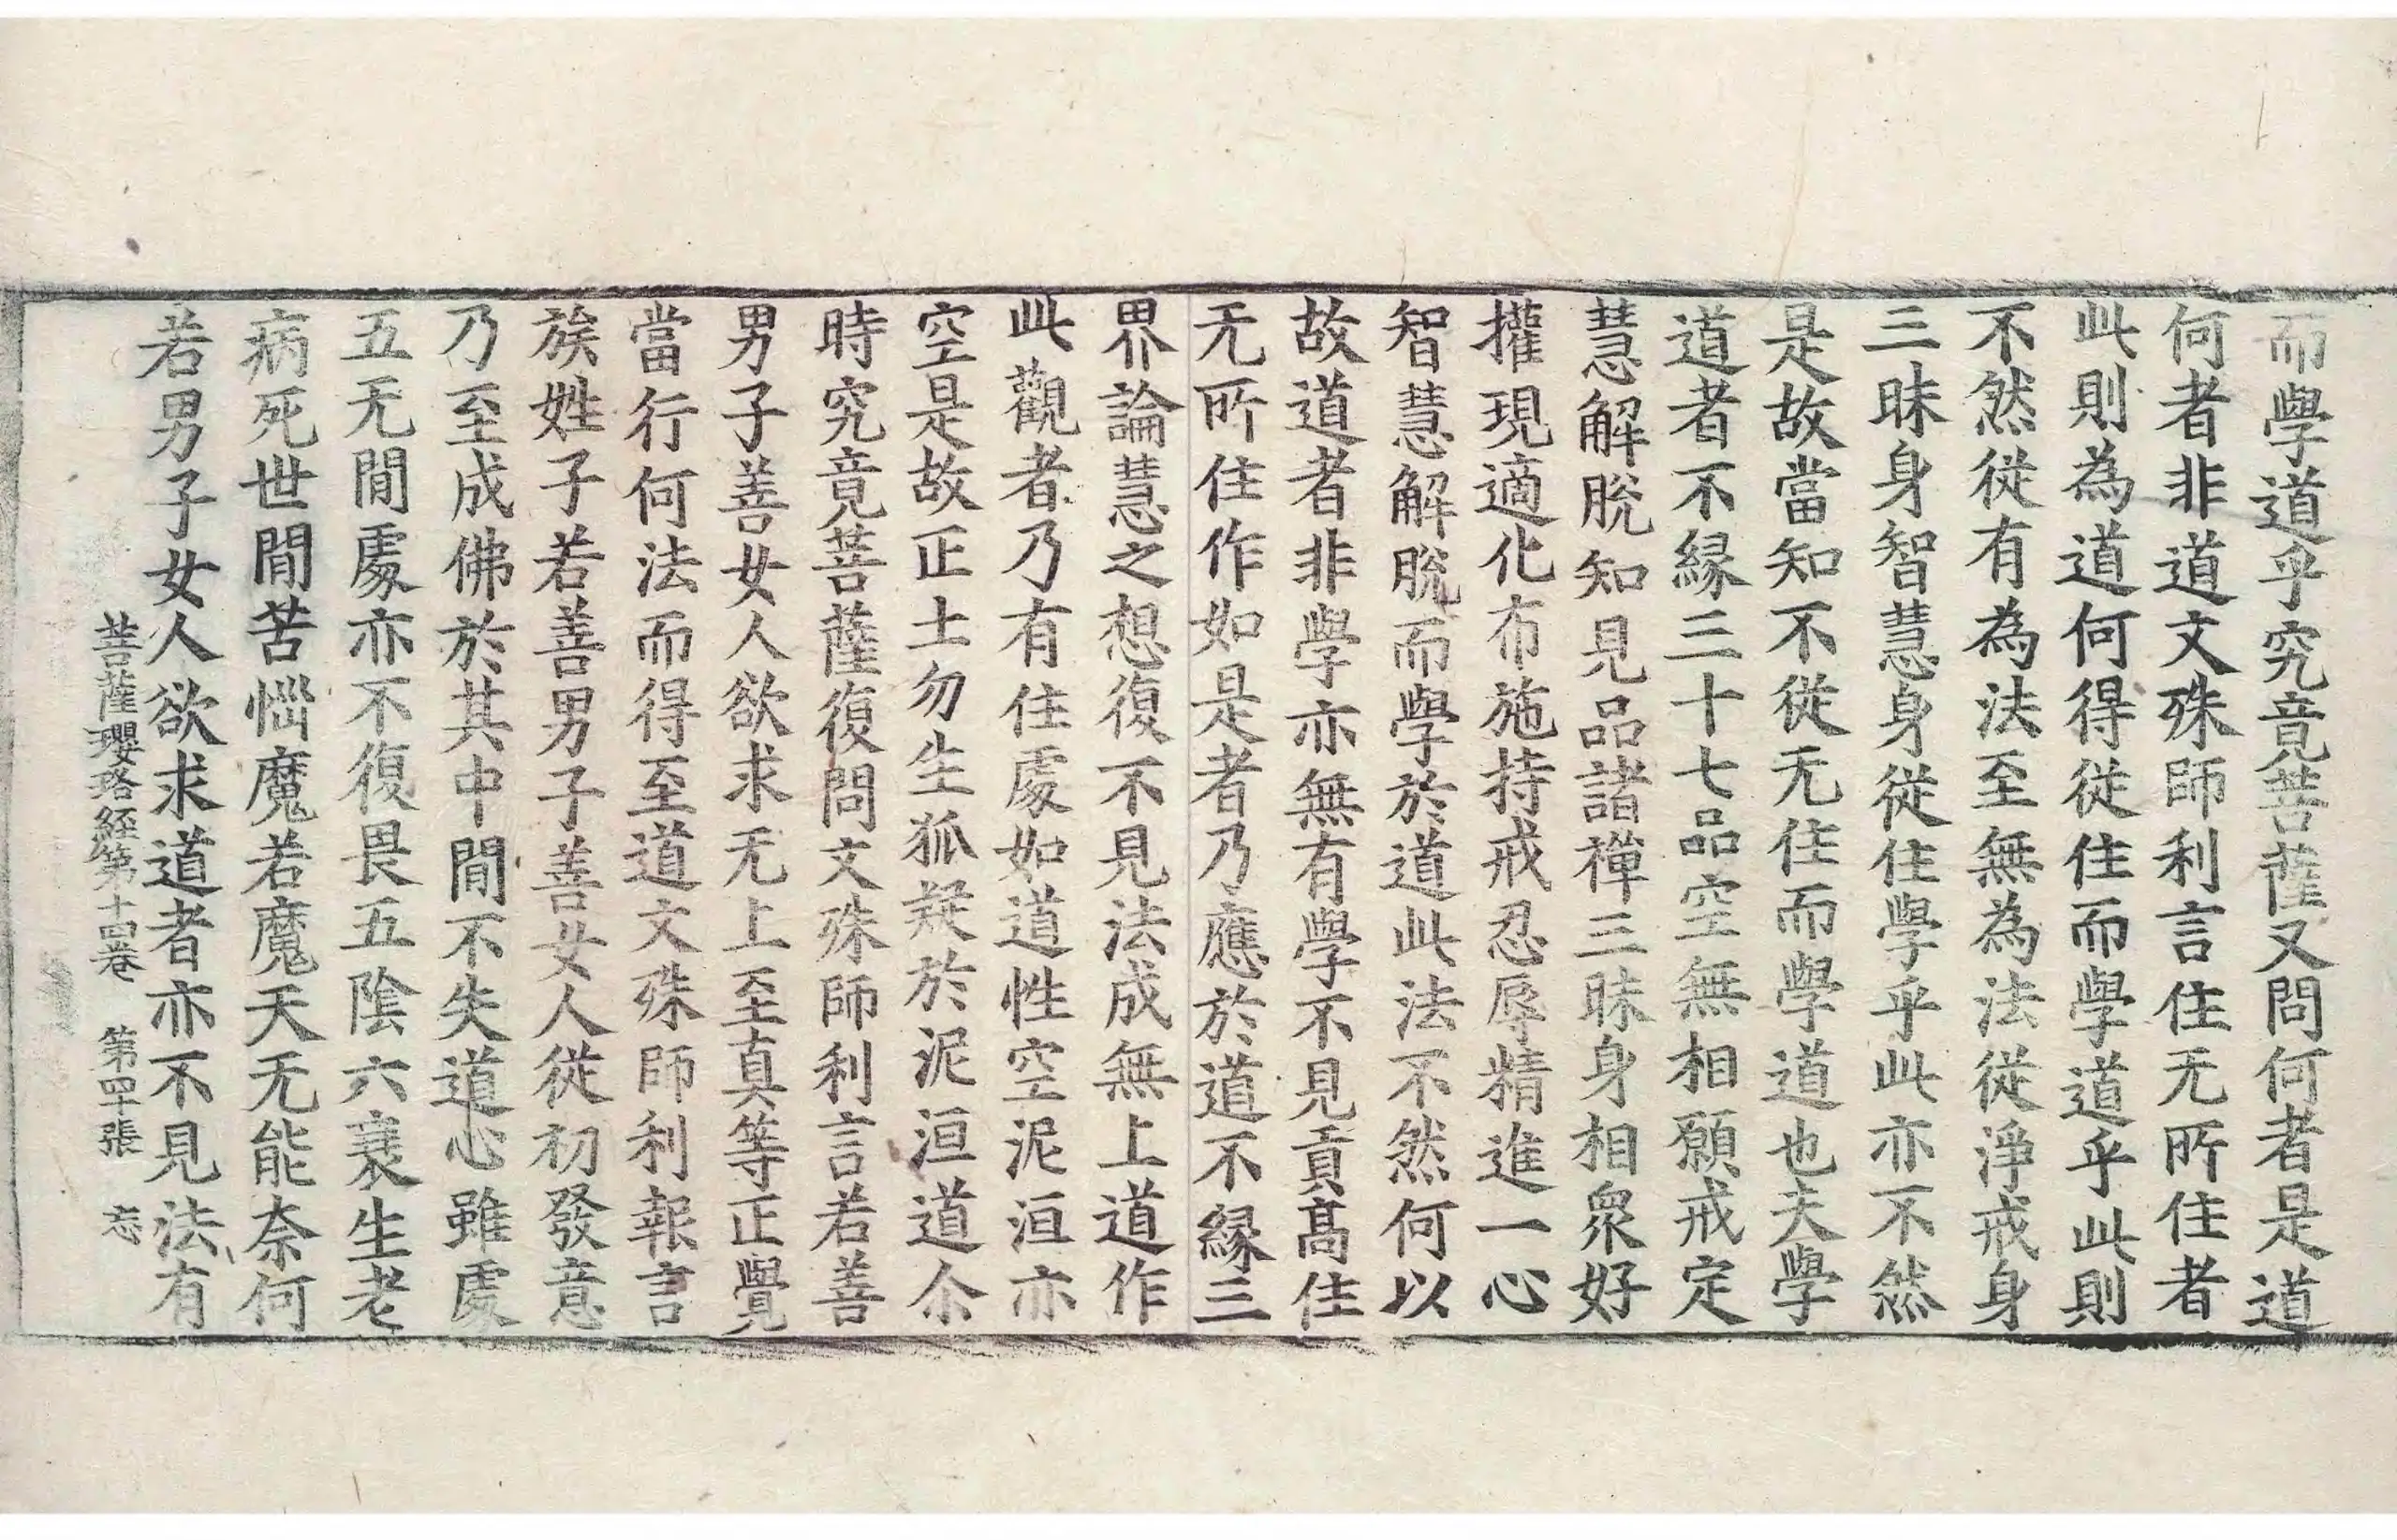 而學道乎究竟菩薩又問何者是道
何者非道文殊師利言住无所住者
此則為道何得從住而學道乎此則
不然從有為法至無為法從淨戒身
三昧身智慧身從住學乎此亦不然
是故當知不從无住而學道也夫學
道者不緣三十七品空無相願戒定
慧解脫知見品諸禪三昧身相眾好
攉現適化布施持戒忍辱精進一心
智慧解脫而學於道此法不然何以
故道者非學亦無有學不見貢高住
无所住作如是者乃應於道不緣三
界論慧之想復不見法成無上道作
此觀者乃有住處如道性空泥洹亦
空是故正士勿生狐疑於泥洹道尒
時究竟菩薩復問文殊師利言若善
男子善女人欲求无上至真等正覺
當行何法而得至道文殊師利報言
族姓子若善男子善女人從初發意
乃至成佛於其中間不失道心雖處
五无間處亦不復畏五陰六衰生老
病死世間苦惱魔若魔天无能奈何
若男子女人欲求道者亦不見法有
菩薩瓔珞經第十四卷 第四十張 忘